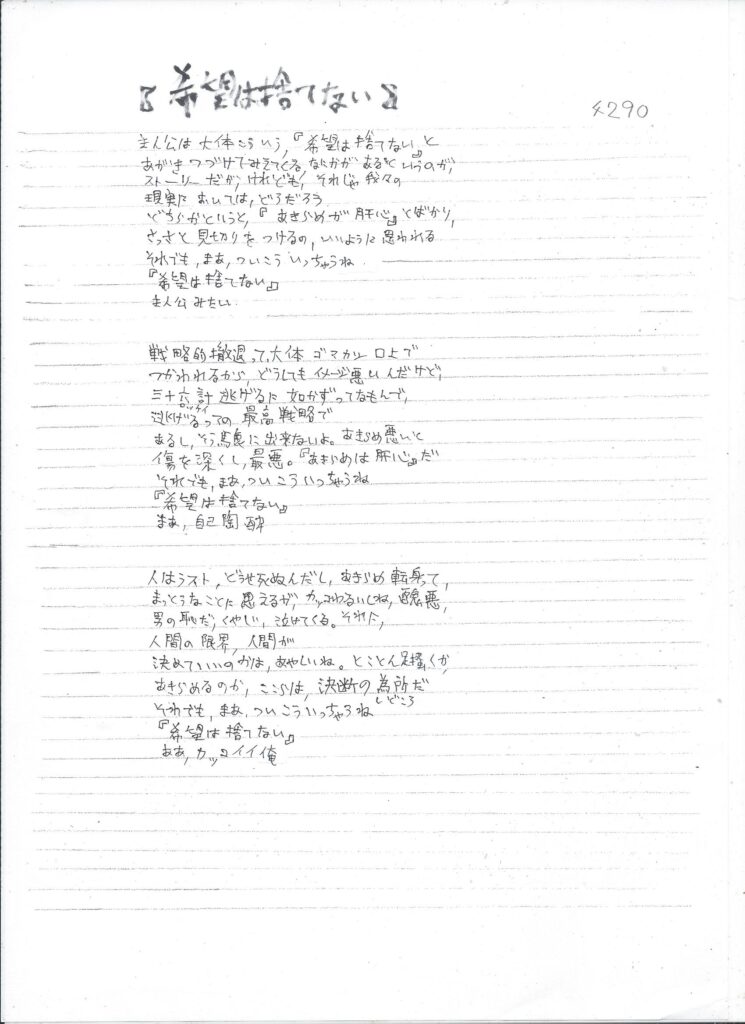 『希望は捨てない』
4290
主人公は大体こういう,『希望は捨てない』と
あがきつづけてみえてくる,なにかがあるというのが,
ストーリーだが,けれども,それじゃ我々の
現実においては,どうだろう
どちらかというと,『あきらめが肝心』とばかり,
さっさと見切りをつけるの,いいように思われる
それでも,まあ,ついこういっちゃうね
『希望は捨てない』
主人公みたい
戦略的撤退って,大体ゴマカシ口上で
つかわれるから,どうしてもイメージ悪いんだけど,
三十六計逃げるに如かずってなもんで,
ロッケイ
逃げるっての最高戦略で
あるし,そう馬鹿に出来ないよ。あきらめ悪いと
傷を深くし,最悪。『あきらめは肝心』だ
それでも,まあ,ついこういっちゃうね
『希望は捨てない』
まあ,自己陶酔
人はラスト,どうせ死ぬんだし,あきらめ転身って,
まっとうなことに思えるが,カッコわるいしね,醜悪,
男の恥だ,くやしい,泣けてくる。それに,
人間の限界,人間が
決めていいのかは,あやしいね。とことん足掻くか,
あきらめるのか,ここらは,決断の為所だ
しどころ
それでも,まあ,ついこういっちゃうね
『希望は捨てない』
ああ,カッコイイ俺